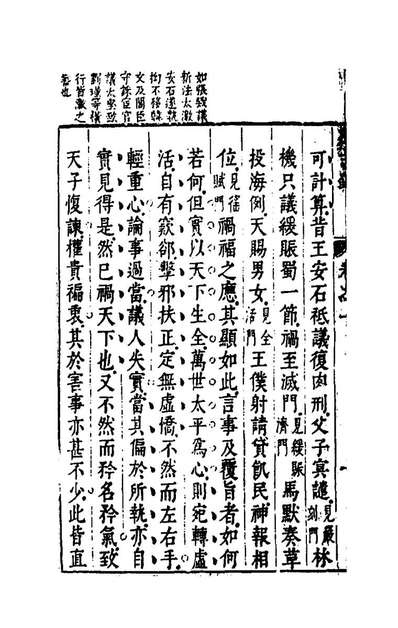 如張致議
新法太激
安石遂執
拗不移韓
文及閣臣
守誅宦官
議太堅致
劉瑾等橫
行皆激之
卷之一
可計算昔王安石祗議復肉刑父子冥譴見嚴刻門林
機只議緩賑蜀一節禍至滅門見緩賑濟門馬默奏草
投海例天賜男女見全活門王僕射請貸飢民神報相
位見徭賦門禍福之應其顯如此言事及覆旨者如何
若何但實以天下生全萬世太平為心則宛轉虛
活自有窾郤擊邪扶正定無虛憍不然而左右手
輕重心論事過當議人失實當其偏於所執亦自
實見得是然已禍天下也又不然而矜名矜氣致
天子愎諫權貴福衷其於害事亦甚不少此皆直